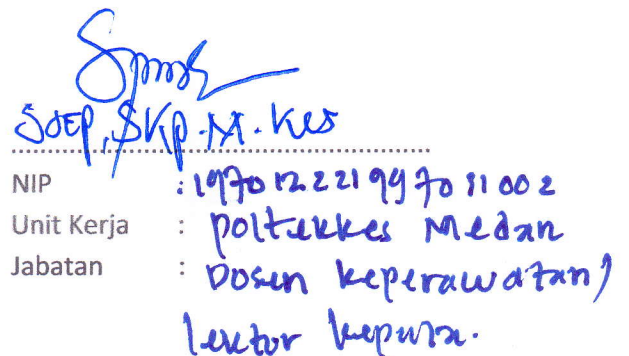 Soep, SKp. M. Kes
NIP : 197012221997031002
Unit Kerja : Poltekkes Medan
Jabatan : Dosen keperawatan /
lektor kepala.